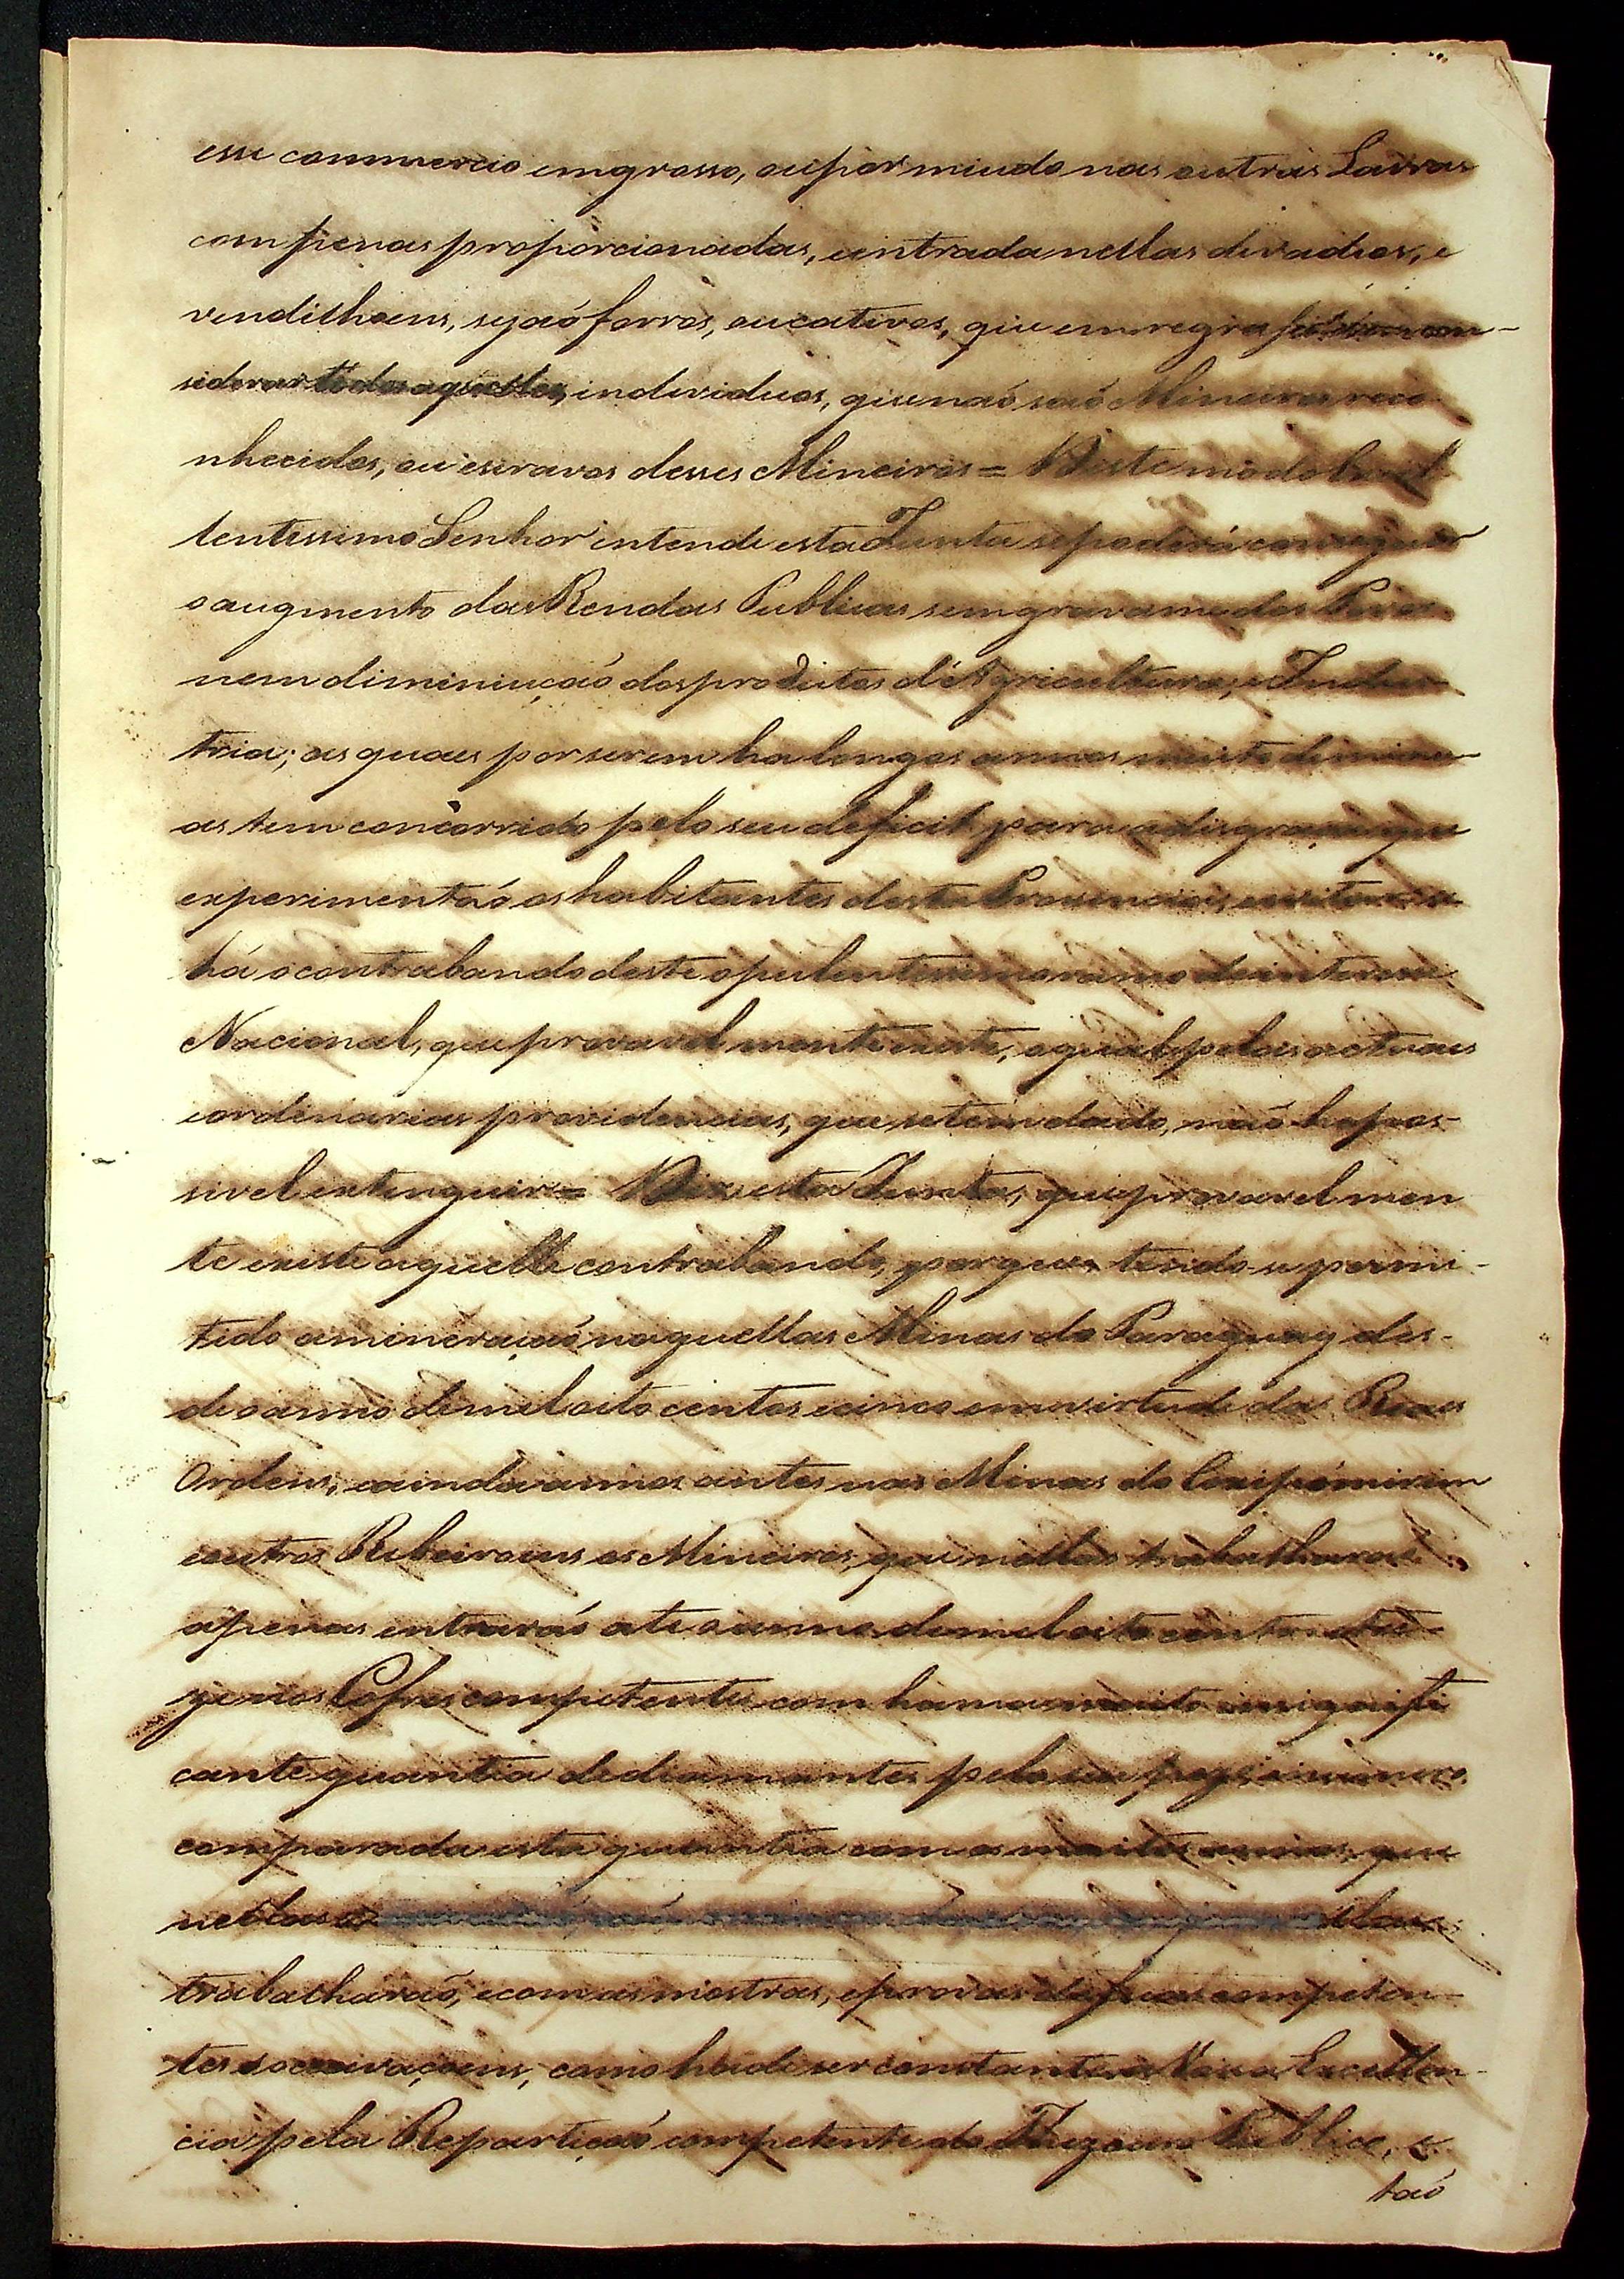 esse commercio emgrosso, oupor miudo nas outras Lavras
com penas proporcionadas, eentrada nellas devadios, e
vendilhoens, sejaó forros, oucativos, que emregra se devem con-
siderar todos aquelles individuos, que naó saó Mineiros reco-
nhecidos, ou escravos desses Mineiros = Deste modo Excel
lentissimo Senhor intende esta Junta sepoderá conseguir
o augmento das Rendas Publicas semgravame dos Povos
nem diminiuçaó dos produtos d'Agricultura, e Indus
tria; as quaes por serem ha longos annos muito diminu
as tem concorrido pelo seu deficit para adisgraça que
experimentaó os habitantes desta Provincia, eevitarse
há o contrabando deste opulentissimo ramo de interesse
Nacional, que provavel mente existe, o qual pelas actuaes
eordinarias providencias, que setem dado, naó he pos-
sivel extinguir = Diz esta Junta, que provavel men
te existe aquelle contrabando, porque tendo-se permi-
tido amineraçaó naquellas Minas do Paraguay des-
de o anno demil oito centos ecinco emvirtude das Reaes
Ordens, eainda annos antes nas Minas do Coxipómirim
eoutros Ribeiroens os Mineiros, que nellas trabalharaó
apenas entraraó até o anno demil oito centos
nos Cofres competentes com huma muito insignifi
cante quantia dediamantes pelo seu numero
comparada esta quantia com os muitos annos, que
nellas
trabalharaó, ecom as mostras, eprovas competen-
tes socavaçoens, como hade ser constante a Vossa Excellen-
cia pela Repartiçaó competente do Thezouro Publico, e
taó